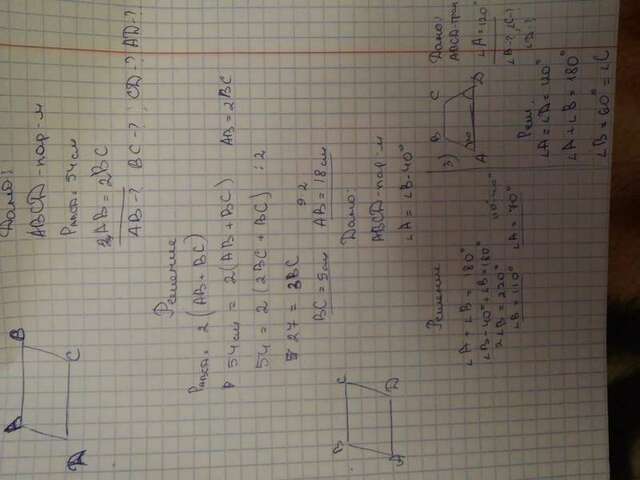 A B
D C
Дано:
ABCD - пар-м
PABCD = 54 см
2AB = 2BC
AB - ? BC - ? ; CD - ? AD - ?
Решение
PABCD = 2 (AB + BC)
P 54 см = 2 (AB + BC) AB = 2BC
54 = 2 (2BC + BC) : 2
27 = 3BC
9 2
BC = 9 см AB = 18 см
B C
A D
Дано:
ABCD - пар-м
∠A = ∠B - 40°
Решение
∠A + ∠B = 180°
∠B - 40° + ∠B = 180°
2∠B = 220° 110° - 40°
∠B = 110° ∠A = 70°
3) B C
A D
Дано:
ABCD - трап
∠A = 120°
∠B - ?, ∠C - ?
∠D - ?
Реш.
∠A = ∠D = 120°
∠A + ∠B = 180°
∠B = 60° = ∠C